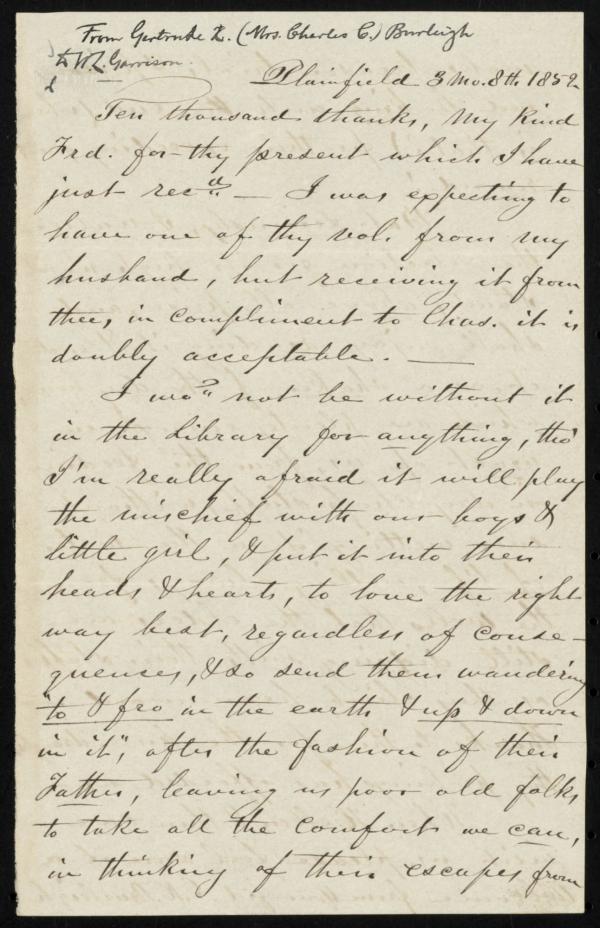 From Gertrude K. (Mrs. Charles C.) Burleigh
to W.L. Garrison.
Plainfield 3 Mo. 8th. 1852
Ten thousand thanks, my kind
Frd. for thy present which I have
just recd. — I was expecting to
have one of thy vol. from my
husband, but receiving it from
thee, in compliment to Chas. it is
doubly acceptable. —
I wod. not be without it
in the Library for anything, tho'
I'm really afraid it will play
the mischief with our boys &
little girl, & put it into their
heads & hearts, to love the right
way best, regardless of conse-
quences, & so send them wandering
"to & fro in the earth & up & down
in it", after the fashion of their
Father, leaving us poor old folks
to take all the comfort we can,
in thinking of their escapes from